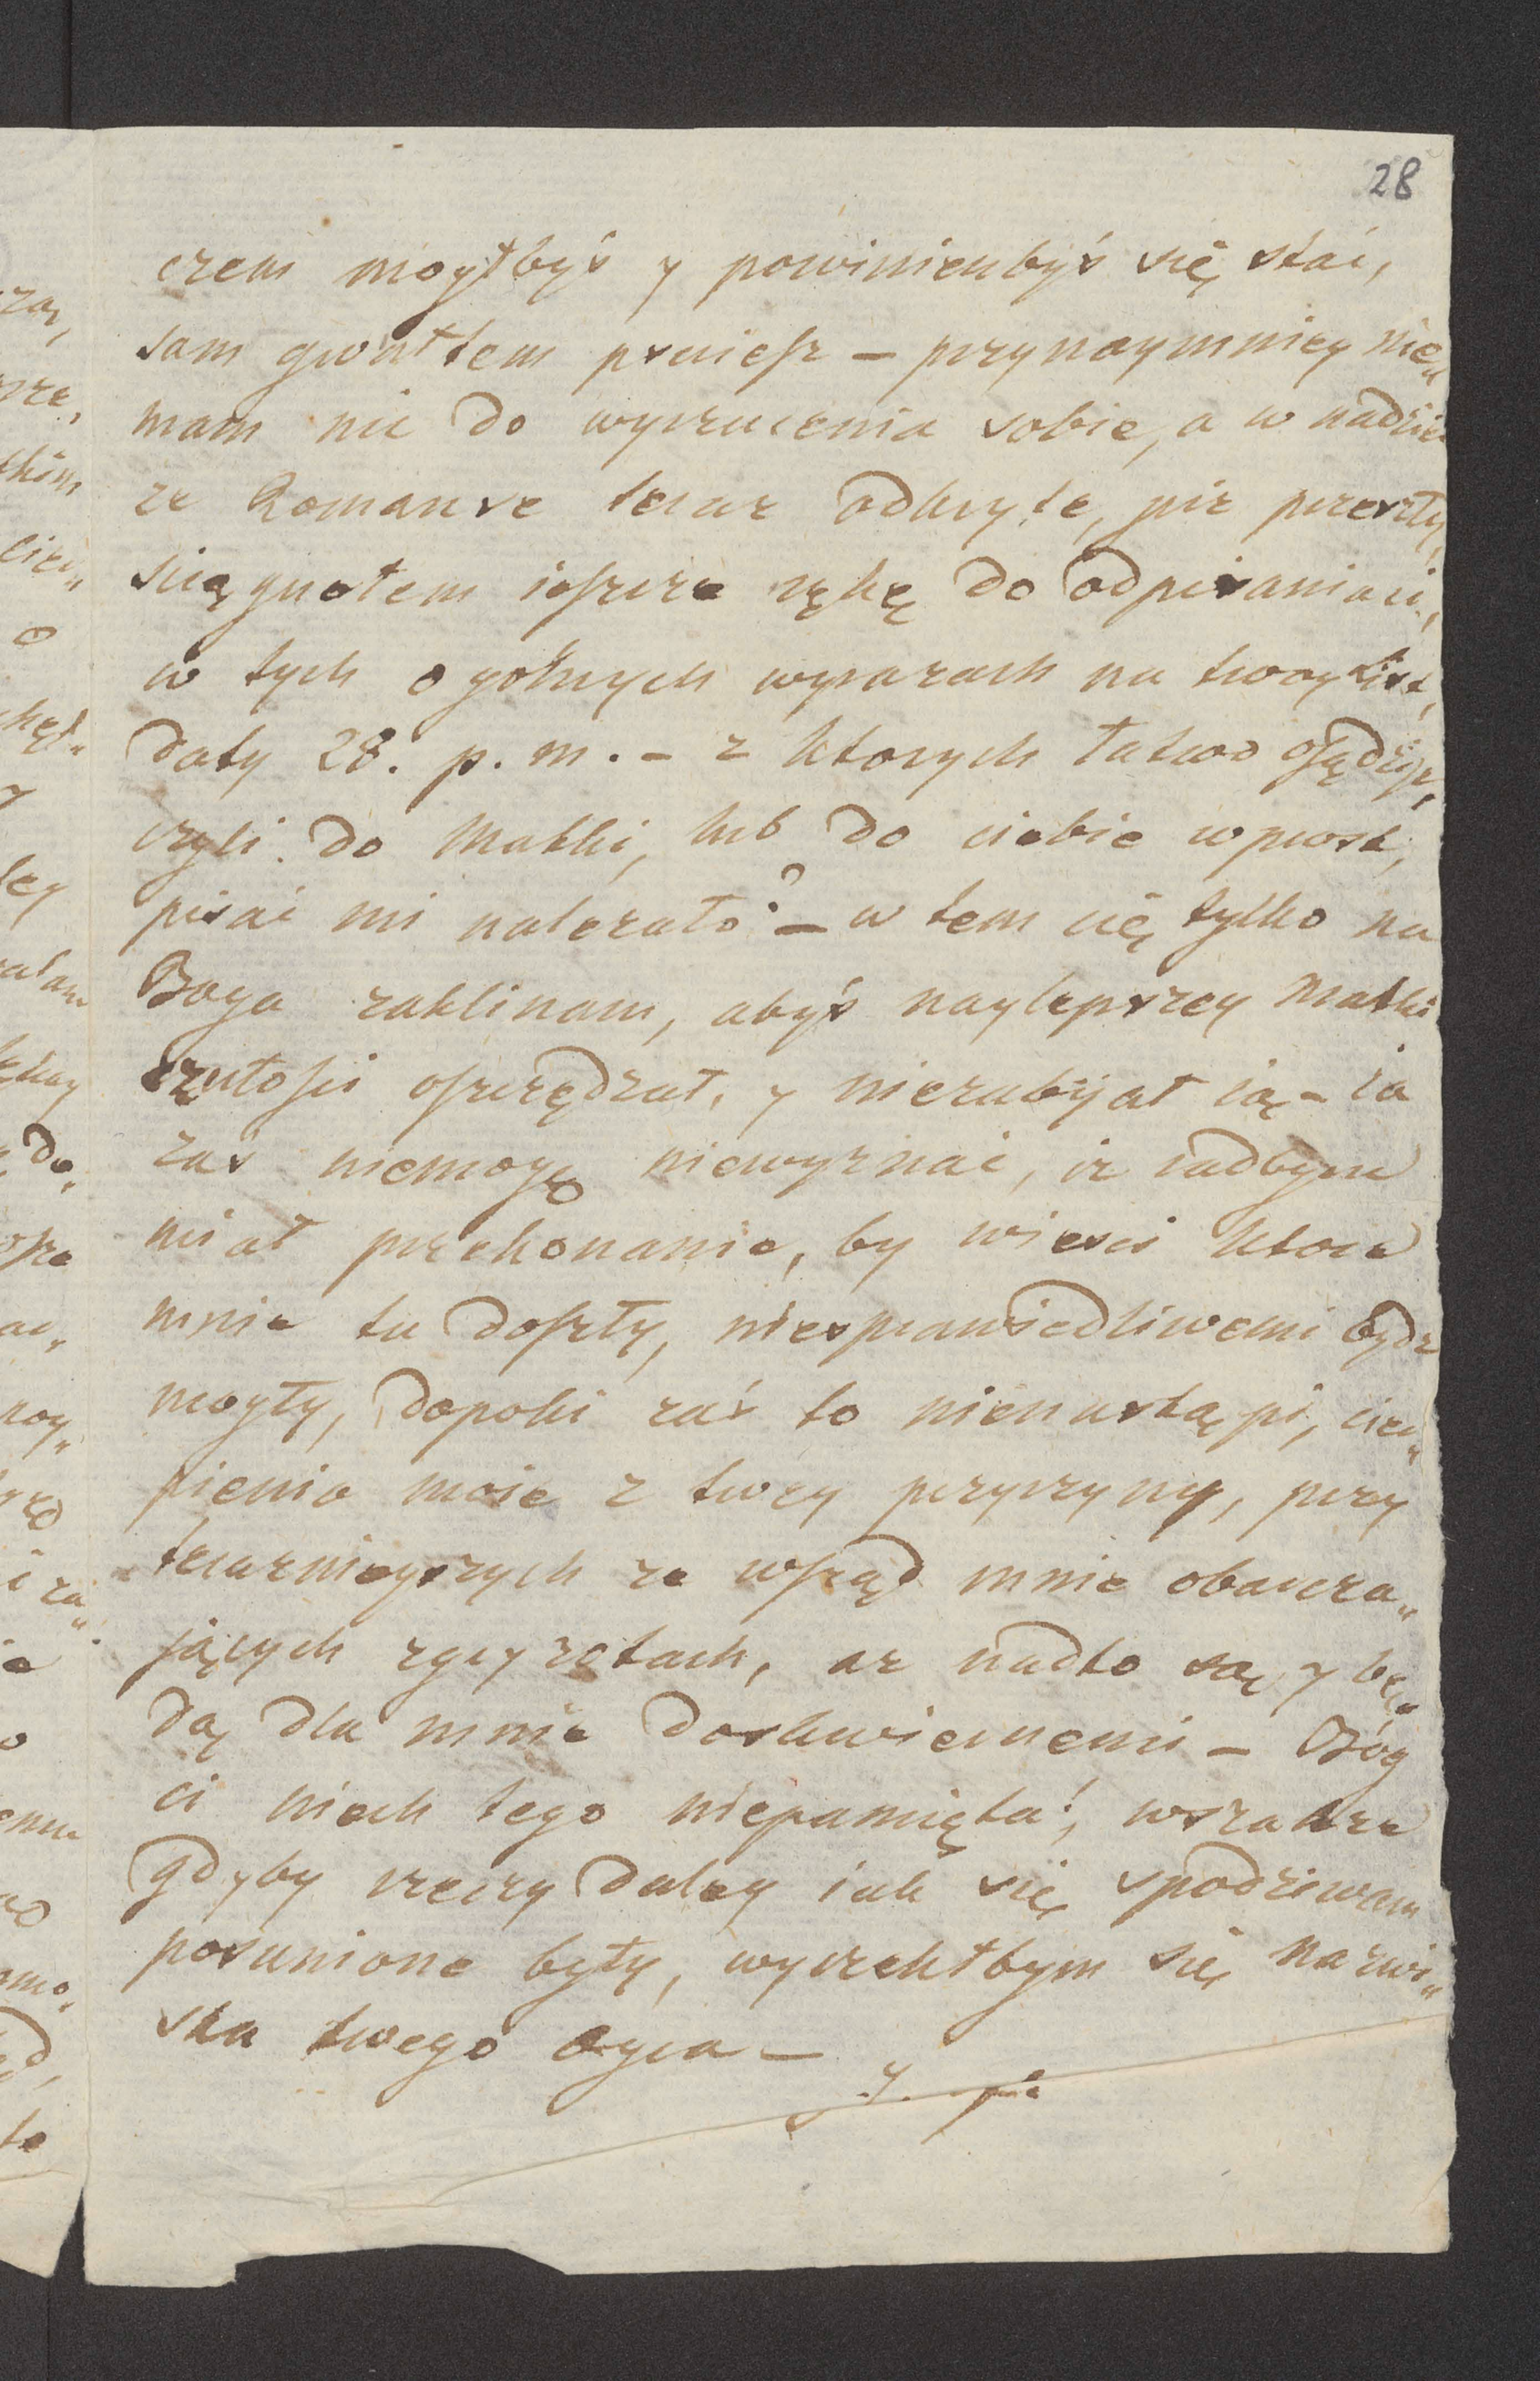 28
czem mogłbyś y powinienbyś się stać,
sam gwałtem psuiesz – przynaymniey nie„
mam nic do wyrzucenia sobie, a w nadziei
ze Romanse teraz odkryte, już przeszły,
sciągnołem ieszcze rękę do odpisaniaci,
w tych ogolnych wyrazach na twoy List,
daty 28. p. m. – z ktorych łatwo osądzisz,
czyli do Matki, lub do ciebie wprost,
pisać mi nalezało? – w tem cię tylko na
Boga zaklinam, abyś naylepszey Matki
czułosci oszczędzał, y niezabijał ią – ia
zaś niemogę niewyznać, iz radbym
miał przekonanie, by wiesci ktore
mnie tu doszły, niesprawiedliwemi bydz
mogły, dopoki zaś to nienastąpi, cier„
pienia moie z twey przyczyny, przy
teraznieyszych ze wsząd mnie obarcza„
jących zgryzotach, az nadto są y bę„
dą dla mnie doskwiernemi – Bóg
ci niech tego niepamięta!, wszakze
gdyby rzeczy daley iak się spodziewam
posunione były, wyrzekłbym się nazwi„
ska twego Oyca –